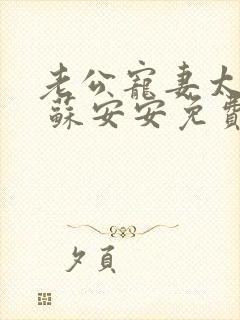 老公寵妻太
蘇安安免費
夕頁